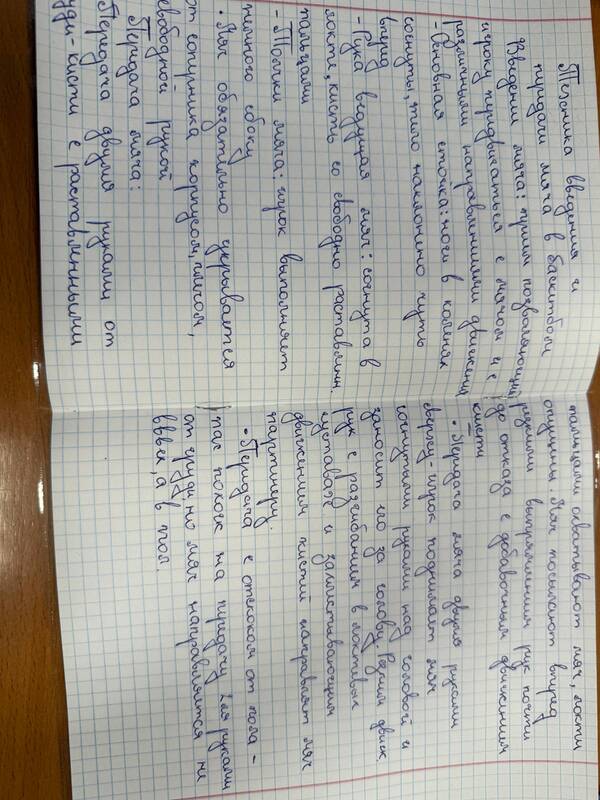 Техника введения и
передачи мяча в баскетболе
Введении мяча: приём позволяющий
игроку передвигаться с мячом и с
различными направлениями движения
- Основная стойка: ноги в коленях
согнуты, тело наклонено чуть
вперёд
- Рука ведущая мяч: согнута в
локте, кисть со свободно расставлен.
пальцами
- Толчки мяча: игрок выполняет
немного сбоку
• Мяч обязательно укрывается
от соперника корпусом, плечом,
свободной рукой
Передача мяча:
Передача двумя руками от
уди - кисти с расставленными
пальцами охватывают мяч, локти
опущены. Мяч посылают вперед
резким выпрямлением рук почти
до отказа с добавочным движением
кисти
• Передача мяча двумя руками
сверху - игрок поднимает мяч
согнутыми руками над головой и
заносит его за голову. Резким движ.
рук с разгибанием в локтевых
суставах и захлёстывающим
движением кистей направляет мяч
партнеру.
• Передача с отскоком от пола -
так похож на передачу 2мя руками
от груди, но мяч направляется не
вверх, а в пол